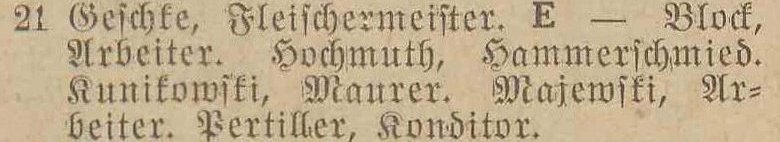 21 Geschke, Fleischermeister. E — Block,
Arbeiter. Hochmuth, Hammerschmied.
Kunikowski, Maurer. Majewski, Ar-
beiter. Pertiller, Konditor.